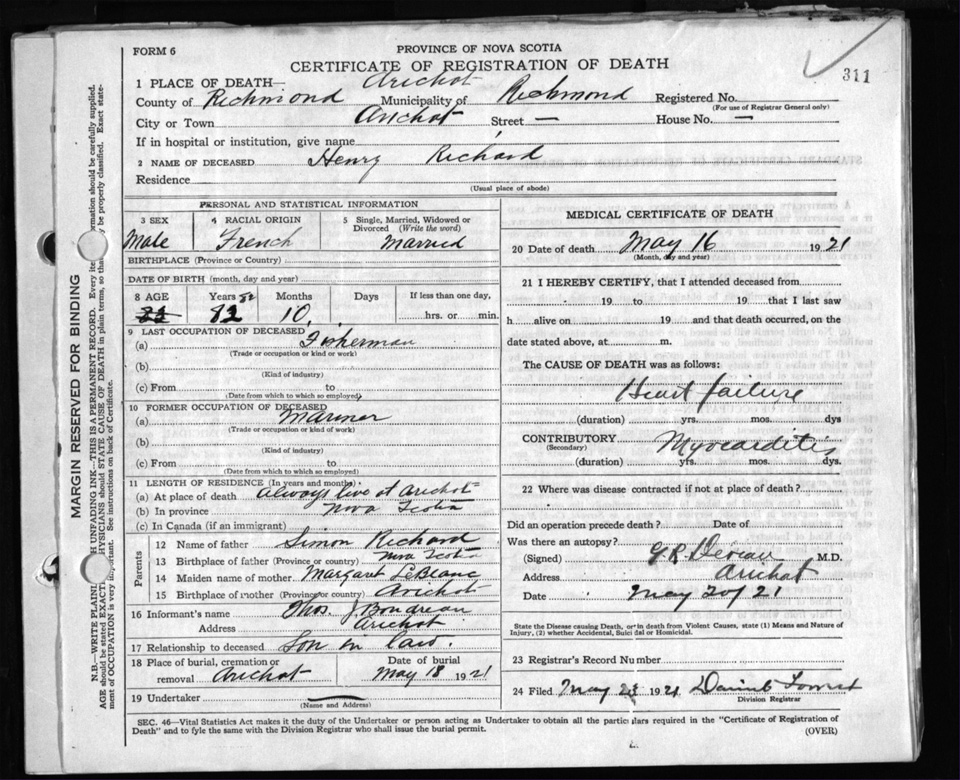 FORM 6
PROVINCE OF NOVA SCOTIA
CERTIFICATE OF REGISTRATION OF DEATH
311
1 PLACE OF DEATH— Arichat
County of Richmond Municipality of Richmond Registered No.
(For use of Registrar General only)
City or Town Arichat Street — House No. —
If in hospital or institution, give name
2 NAME OF DECEASED Henry Richard
Residence
(Usual place of abode)
PERSONAL AND STATISTICAL INFORMATION
3 SEX 4 RACIAL ORIGIN 5 Single, Married, Widowed or Divorced (Write the word)
Male French Married
BIRTHPLACE (Province or Country)
DATE OF BIRTH (month, day and year)
8 AGE Years 82 Months Days If less than one day,
82 10 hrs. or min.
9 LAST OCCUPATION OF DECEASED
(a) Fisherman
(Trade or occupation or kind or work)
(b)
(Kind of industry)
(c) From to
(Date from which to which so employed)
10 FORMER OCCUPATION OF DECEASED
(a) Mariner
(Trade or occupation or kind of work)
(b)
(Kind of industry)
(c) From to
(Date from which to which so employed)
11 LENGTH OF RESIDENCE (In years and months)
(a) At place of death always live at Arichat
(b) In province Nova Scotia
(c) In Canada (if an immigrant)
Parents
12 Name of father Simon Richard
13 Birthplace of father (Province or country) Nova Scotia
14 Maiden name of mother Margaret LeBlanc
15 Birthplace of mother (Province or country) Arichat
16 Informant's name Thos. J Boudreau
Address Arichat
17 Relationship to deceased Son in law.
18 Place of burial, cremation or removal Arichat Date of burial May 18 1921
19 Undertaker
(Name and Address)
MEDICAL CERTIFICATE OF DEATH
20 Date of death May 16 1921
(Month, day and year)
21 I HEREBY CERTIFY, that I attended deceased from
19 to 19 that I last saw
h alive on 19 and that death occurred, on the
date stated above, at m.
The CAUSE OF DEATH was as follows:
Heart failure
(duration) yrs. mos. dys
CONTRIBUTORY Myocarditis
(Secondary)
(duration) yrs. mos. dys.
22 Where was disease contracted if not at place of death?
Did an operation precede death? Date of
Was there an autopsy?
(Signed) M.D.
Address Arichat
Date May 21
State the Disease causing Death, or in death from Violent Causes, state (1) Means and Nature of
Injury, (2) whether Accidental, Suicidal or Homicidal.
23 Registrar's Record Number
24 Filed May 1921
Division Registrar
SEC. 46—Vital Statistics Act makes it the duty of the Undertaker or person acting as Undertaker to obtain all the particulars required in the "Certificate of Registration of
Death" and to fyle the same with the Division Registrar who shall issue the burial permit.
(OVER)
MARGIN RESERVED FOR BINDING